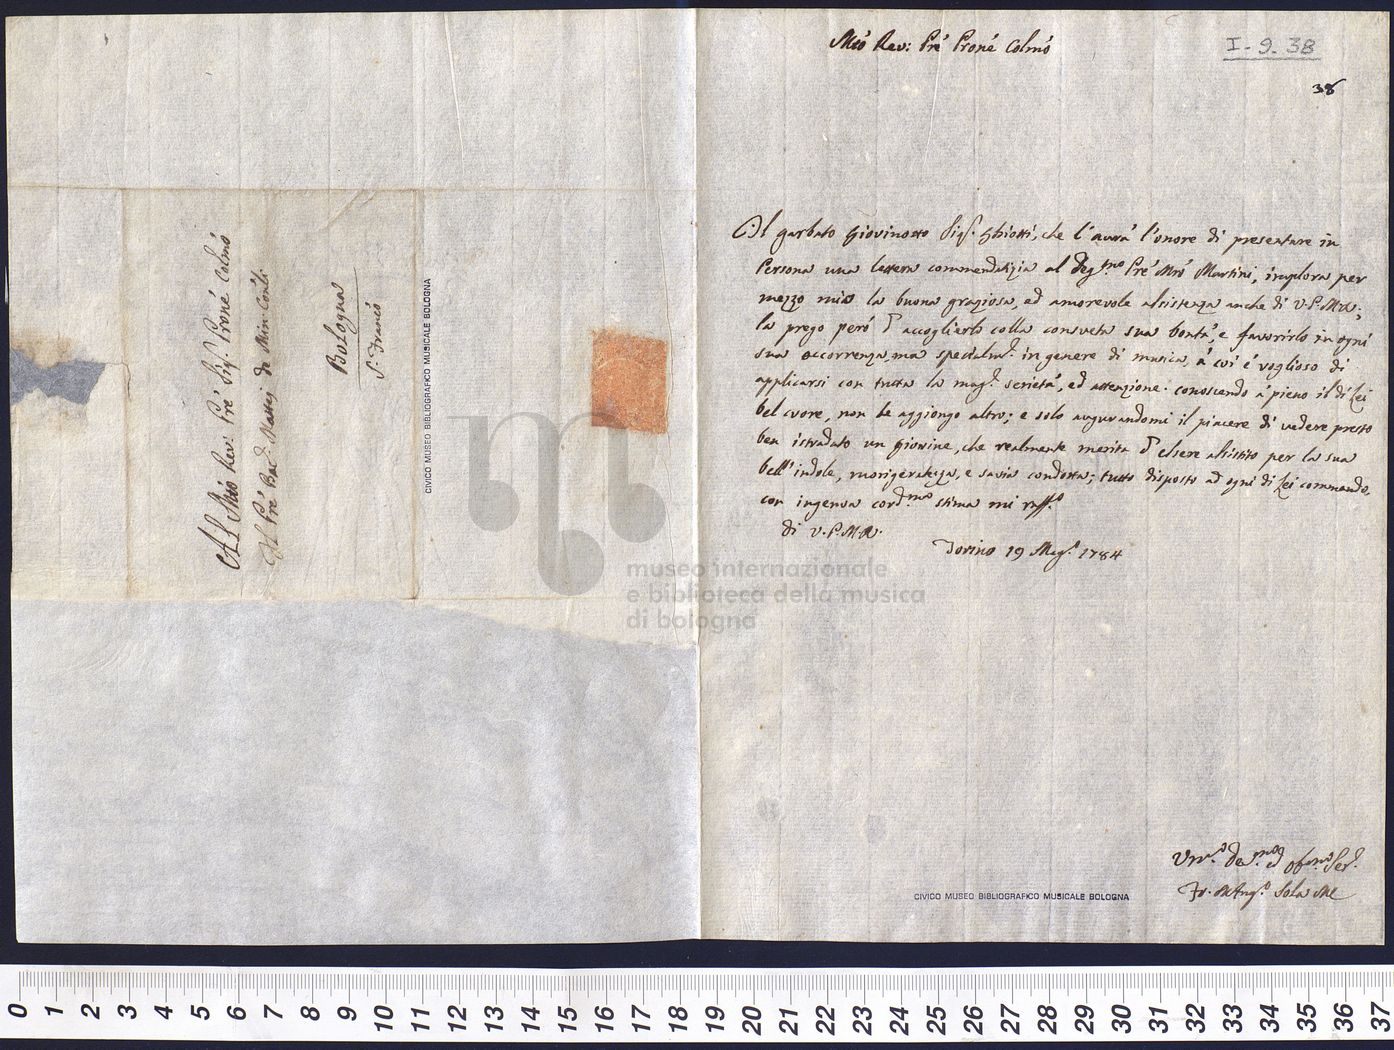 Al Mtó Rev: Pré Sigr. Proné Colmó
Il Pré Bacr. Mattei de Min: Conli.
Bologna
S. Francó
CIVICO MUSEO BIBLIOGRAFICO MUSICALE BOLOGNA
Mtó Rev: Pré Proné Colmó
I-9-38
38
Il garbato Giovinotto Sigr. Ghiotti, che l'aurá l'onore di presentare in
Persona una lettera commendatizia al degmo Pré Mró Martini, implora per
mezzo mio la buona graziosa, ed amorevole assistenza anche di V.P.M.R.;
la prego peró d'accoglierlo colla consueta sua bontá, e favorirlo in ogni
sua occorrenza, ma specialmte. in genere di musica, á cui é voglioso di
applicarsi con tutta la magr. serietá, ed attenzione. conoscendo á pieno il di Lei
bel cuore, non le aggiongo altro; e solo augurandomi il piacere di vedere presto
ben istradato un Giovine, che realmente merita d'essere assistito per la sua
bell'indole, morigeratezza, e savia condotta; tutto disposto ad ogni di Lei commando,
con ingenua cordma stima mi raffo.
di V.P.M.R.
Torino 19 Mago. 1784
Umo. Demo. ed Obmo Serr.
Fr. MAngo. Sola MC
CIVICO MUSEO BIBLIOGRAFICO MUSICALE BOLOGNA
museo internazionale
e biblioteca della musica
di bologna
0 1 2 3 4 5 6 7 8 9 10 11 12 13 14 15 16 17 18 19 20 21 22 23 24 25 26 27 28 29 30 31 32 33 34 35 36 37